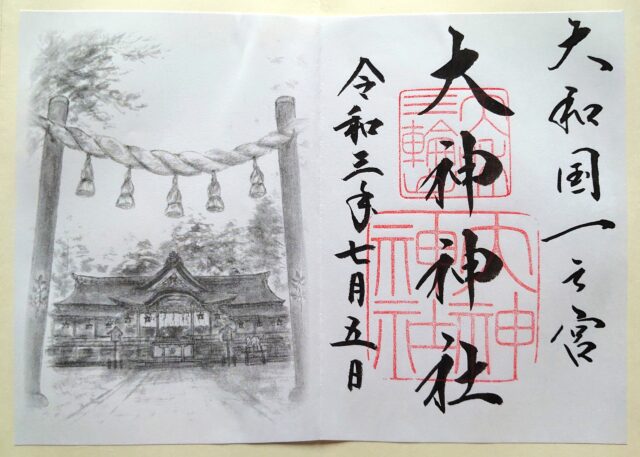 大和国一之宮
大神神社
令和三年七月五日
三輪
大神神社